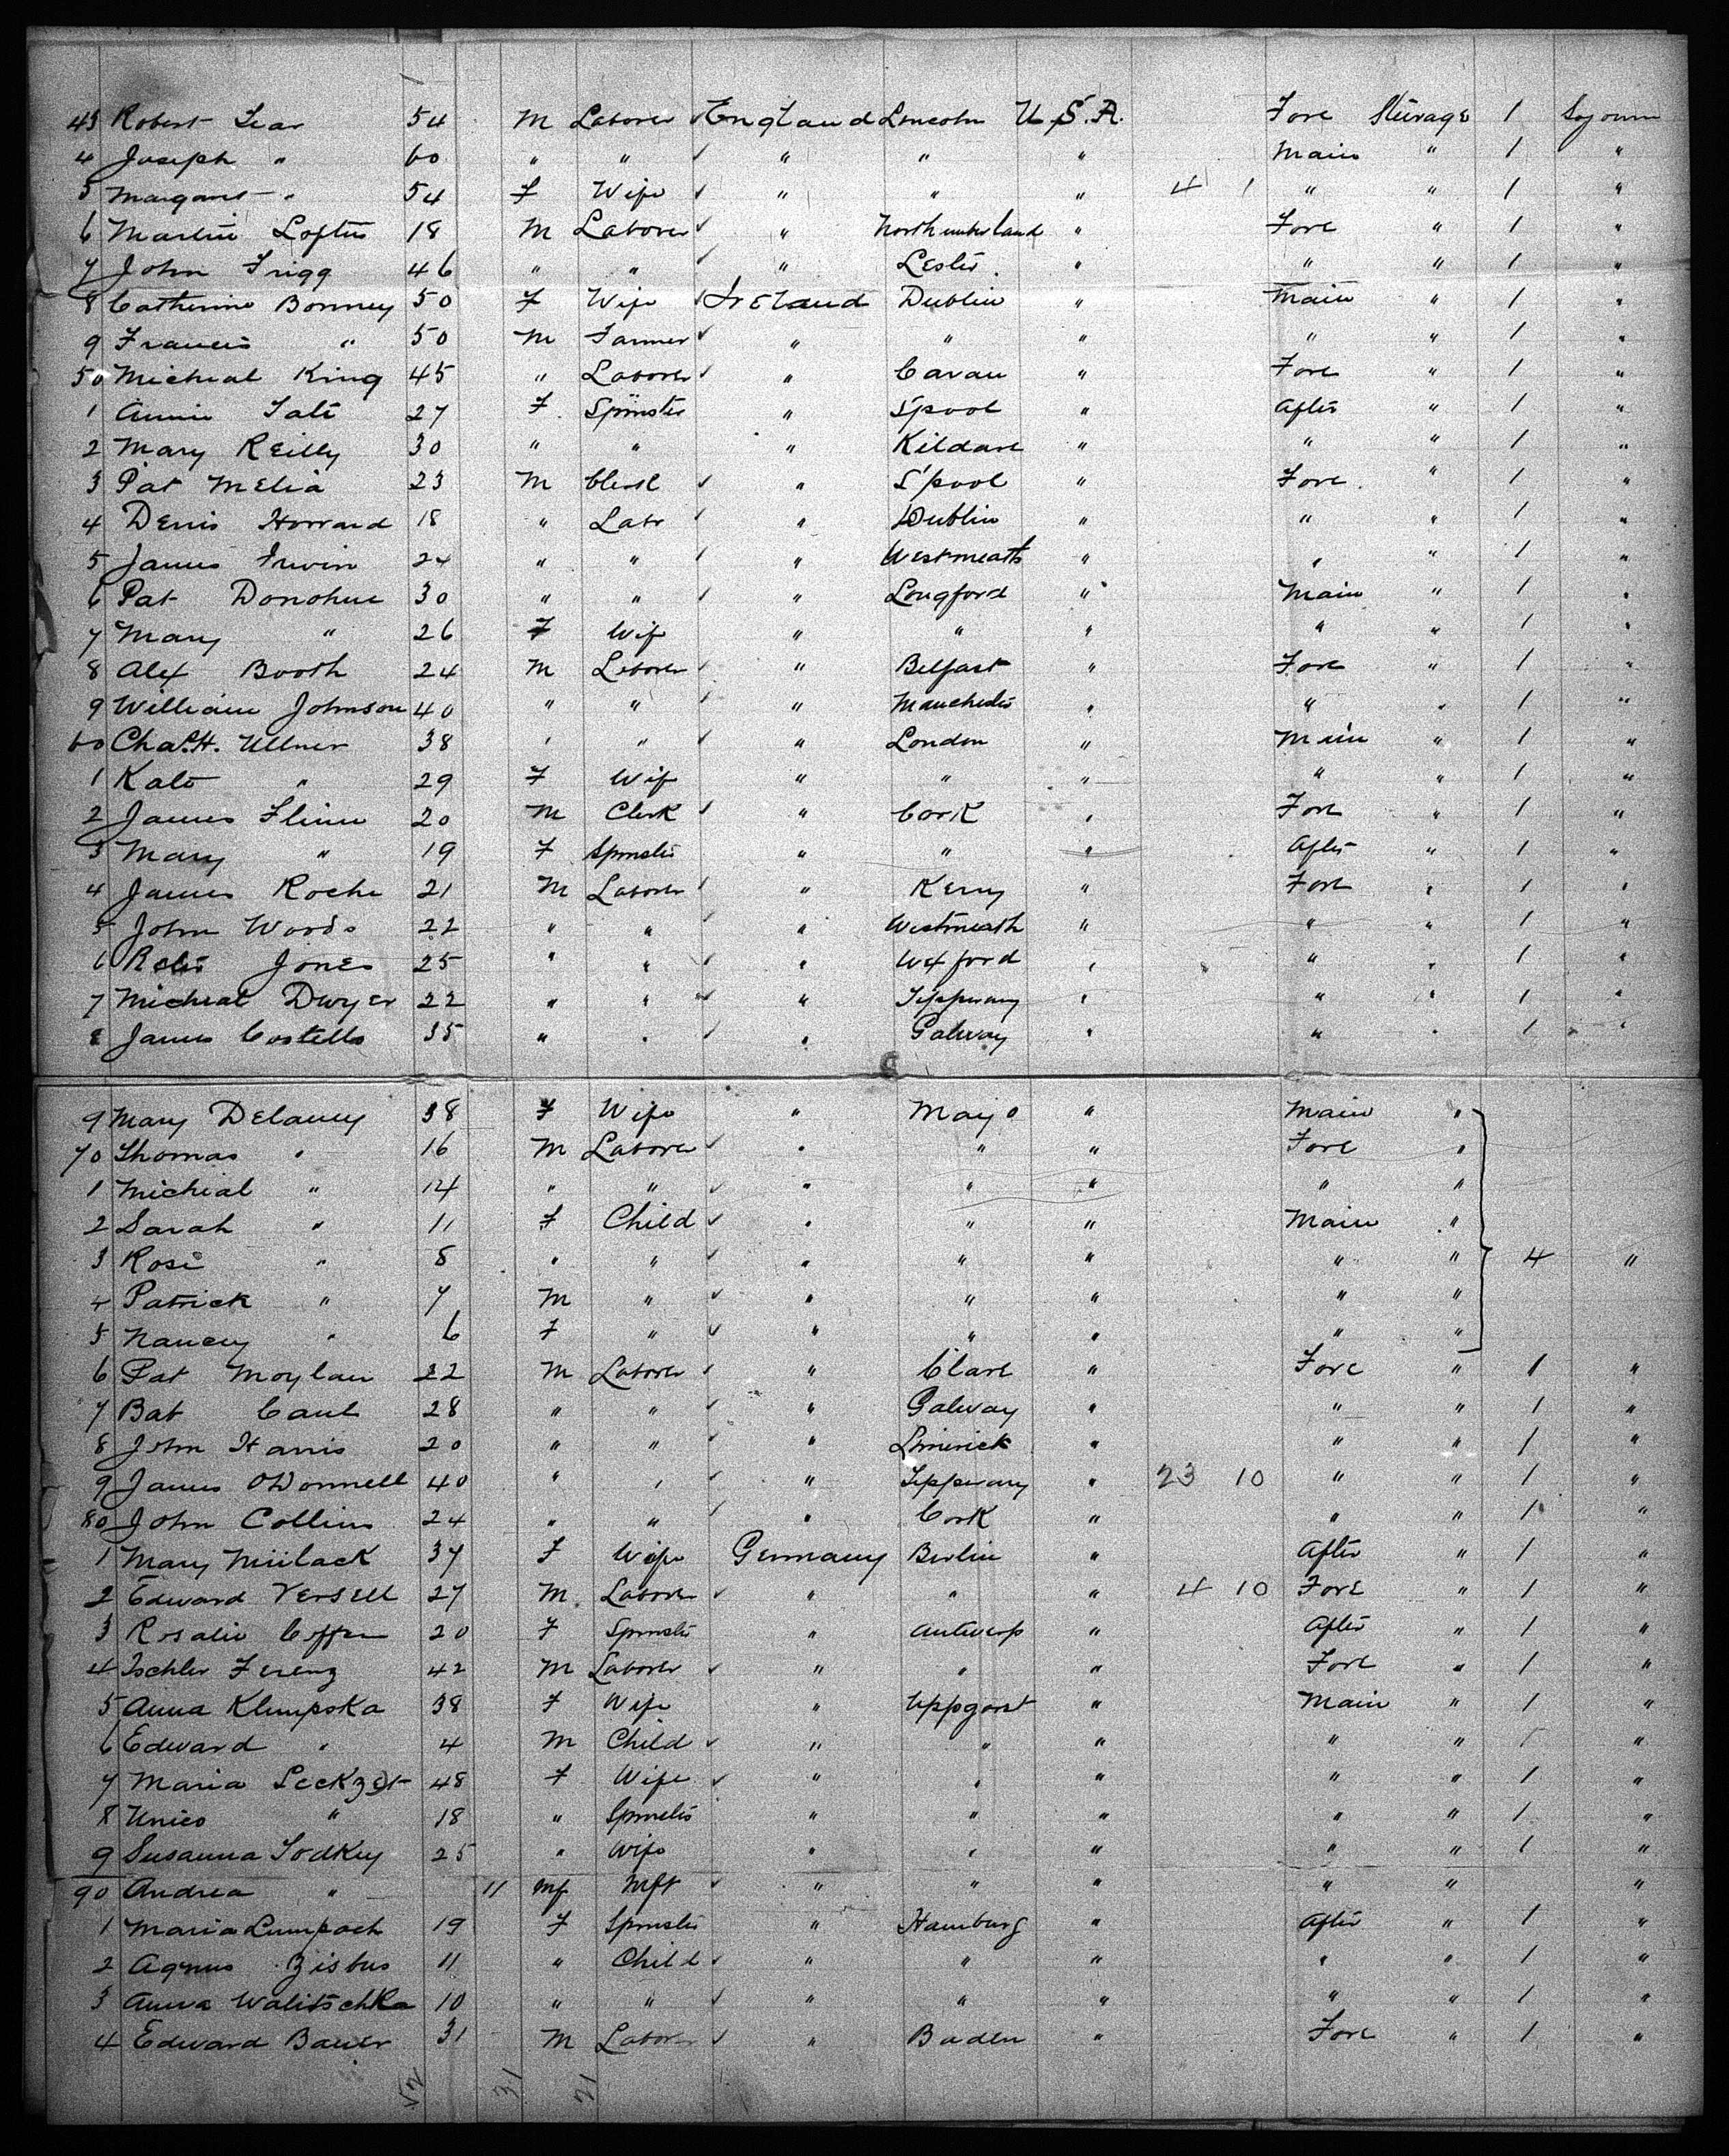 43 Robert Lear 54 M Laborer ✓ England Lincoln U.S.A. Fore Steerage 1 Sojourn
4 Joseph " 60 " " ✓ " " " Main " 1 "
5 Margaret " 54 F Wife ✓ " " " 4 1 " " 1 "
6 Martin Loftus 18 M Laborer ✓ " Northumberland " Fore " 1 "
7 John Frigg 46 " " ✓ " Lester " " " 1 "
8 Catherine Bonney 50 F Wife ✓ Ireland Dublin " Main " 1 "
9 Francis " 50 M Farmer ✓ " " " " " 1 "
50 Micheal King 45 " Laborer ✓ " Cavan " Fore " 1 "
1 Annie Tate 27 F Spinster " L'pool " After " 1 "
2 Mary Reilly 30 " " " Kildare " " " 1 "
3 Pat Melia 23 M Clerk ✓ " L'pool " Fore " 1 "
4 Denis Horrard 18 " Labr ✓ " Dublin " " " 1 "
5 James Irwin 24 " " ✓ " Westmeath " " " 1 "
6 Pat Donohue 30 " " ✓ " Longford " Main " 1 "
7 Mary " 26 F Wife " " " " " 1 "
8 Alex Booth 24 M Laborer ✓ " Belfast " Fore " 1 "
9 William Johnson 40 " " ✓ " Manchester " " " 1 "
60 Chas. H. Ullner 38 " " ✓ " London " Main " 1 "
1 Kate " 29 F Wife " " " " " 1 "
2 James Flinn 20 M Clerk ✓ " Cork " Fore " 1 "
3 Mary " 19 F Spinster " " " After " 1 "
4 James Roche 21 M Laborer ✓ " Kerry " Fore " 1 "
5 John Woods 22 " " ✓ " Westmeath " " " 1 "
6 Robt Jones 25 " " ✓ " Wexford " " " 1 "
7 Micheal Dwyer 22 " " ✓ " Tipperary " " " 1 "
8 James Costello 35 " " ✓ " Galway " " " 1 "
9 Mary Delaney 38 F Wife " Mayo " Main "
70 Thomas " 16 M Laborer ✓ " " " Fore "
1 Micheal " 14 " " ✓ " " " " "
2 Sarah " 11 F Child ✓ " " " Main "
3 Rose " 8 " " ✓ " " " " " 4 "
4 Patrick " 7 M " ✓ " " " " "
5 Nancy " 6 F " ✓ " " " " "
6 Pat Moylan 22 M Laborer ✓ " Clare " Fore " 1 "
7 Bat Caul 28 " " ✓ " Galway " " " 1 "
8 John Harris 20 " " ✓ " Limerick " " " 1 "
9 James O'Donnell 40 " " ✓ " Tipperary " 23 10 " " 1 "
80 John Collins 24 " " ✓ " Cork " " " 1 "
1 Mary Miilack 37 F Wife Germany Berlin " After " 1 "
2 Edward Versell 27 M Laborer ✓ " " " 4 10 Fore " 1 "
3 Rosalie 20 F Spinster " Antwerp " After " 1 "
4 Ischler Ferenz 42 M Laborer ✓ " " " Fore " 1 "
5 Anna Klumpska 38 F Wife " Uppgorst " Main " 1 "
6 Edward " 4 M Child ✓ " " " " " 1 "
7 Maria 48 F Wife ✓ " " " " " 1 "
8 Unico " 18 " Spinster " " " " " 1 "
9 Susanna Todkey 25 " Wife " " " " " 1 "
90 Andrea " 11 Mf Mft ✓ " " " " " "
1 Maria Lumpach 19 F Spinster " Hamburg " After " 1 "
2 Agnus Zisbus 11 " Child ✓ " " " " " 1 "
3 Anna Walitschka 10 " " ✓ " " " " " 1 "
4 Edward Bauer 31 M Laborer ✓ " Baden " Fore " 1 "
52 31 21